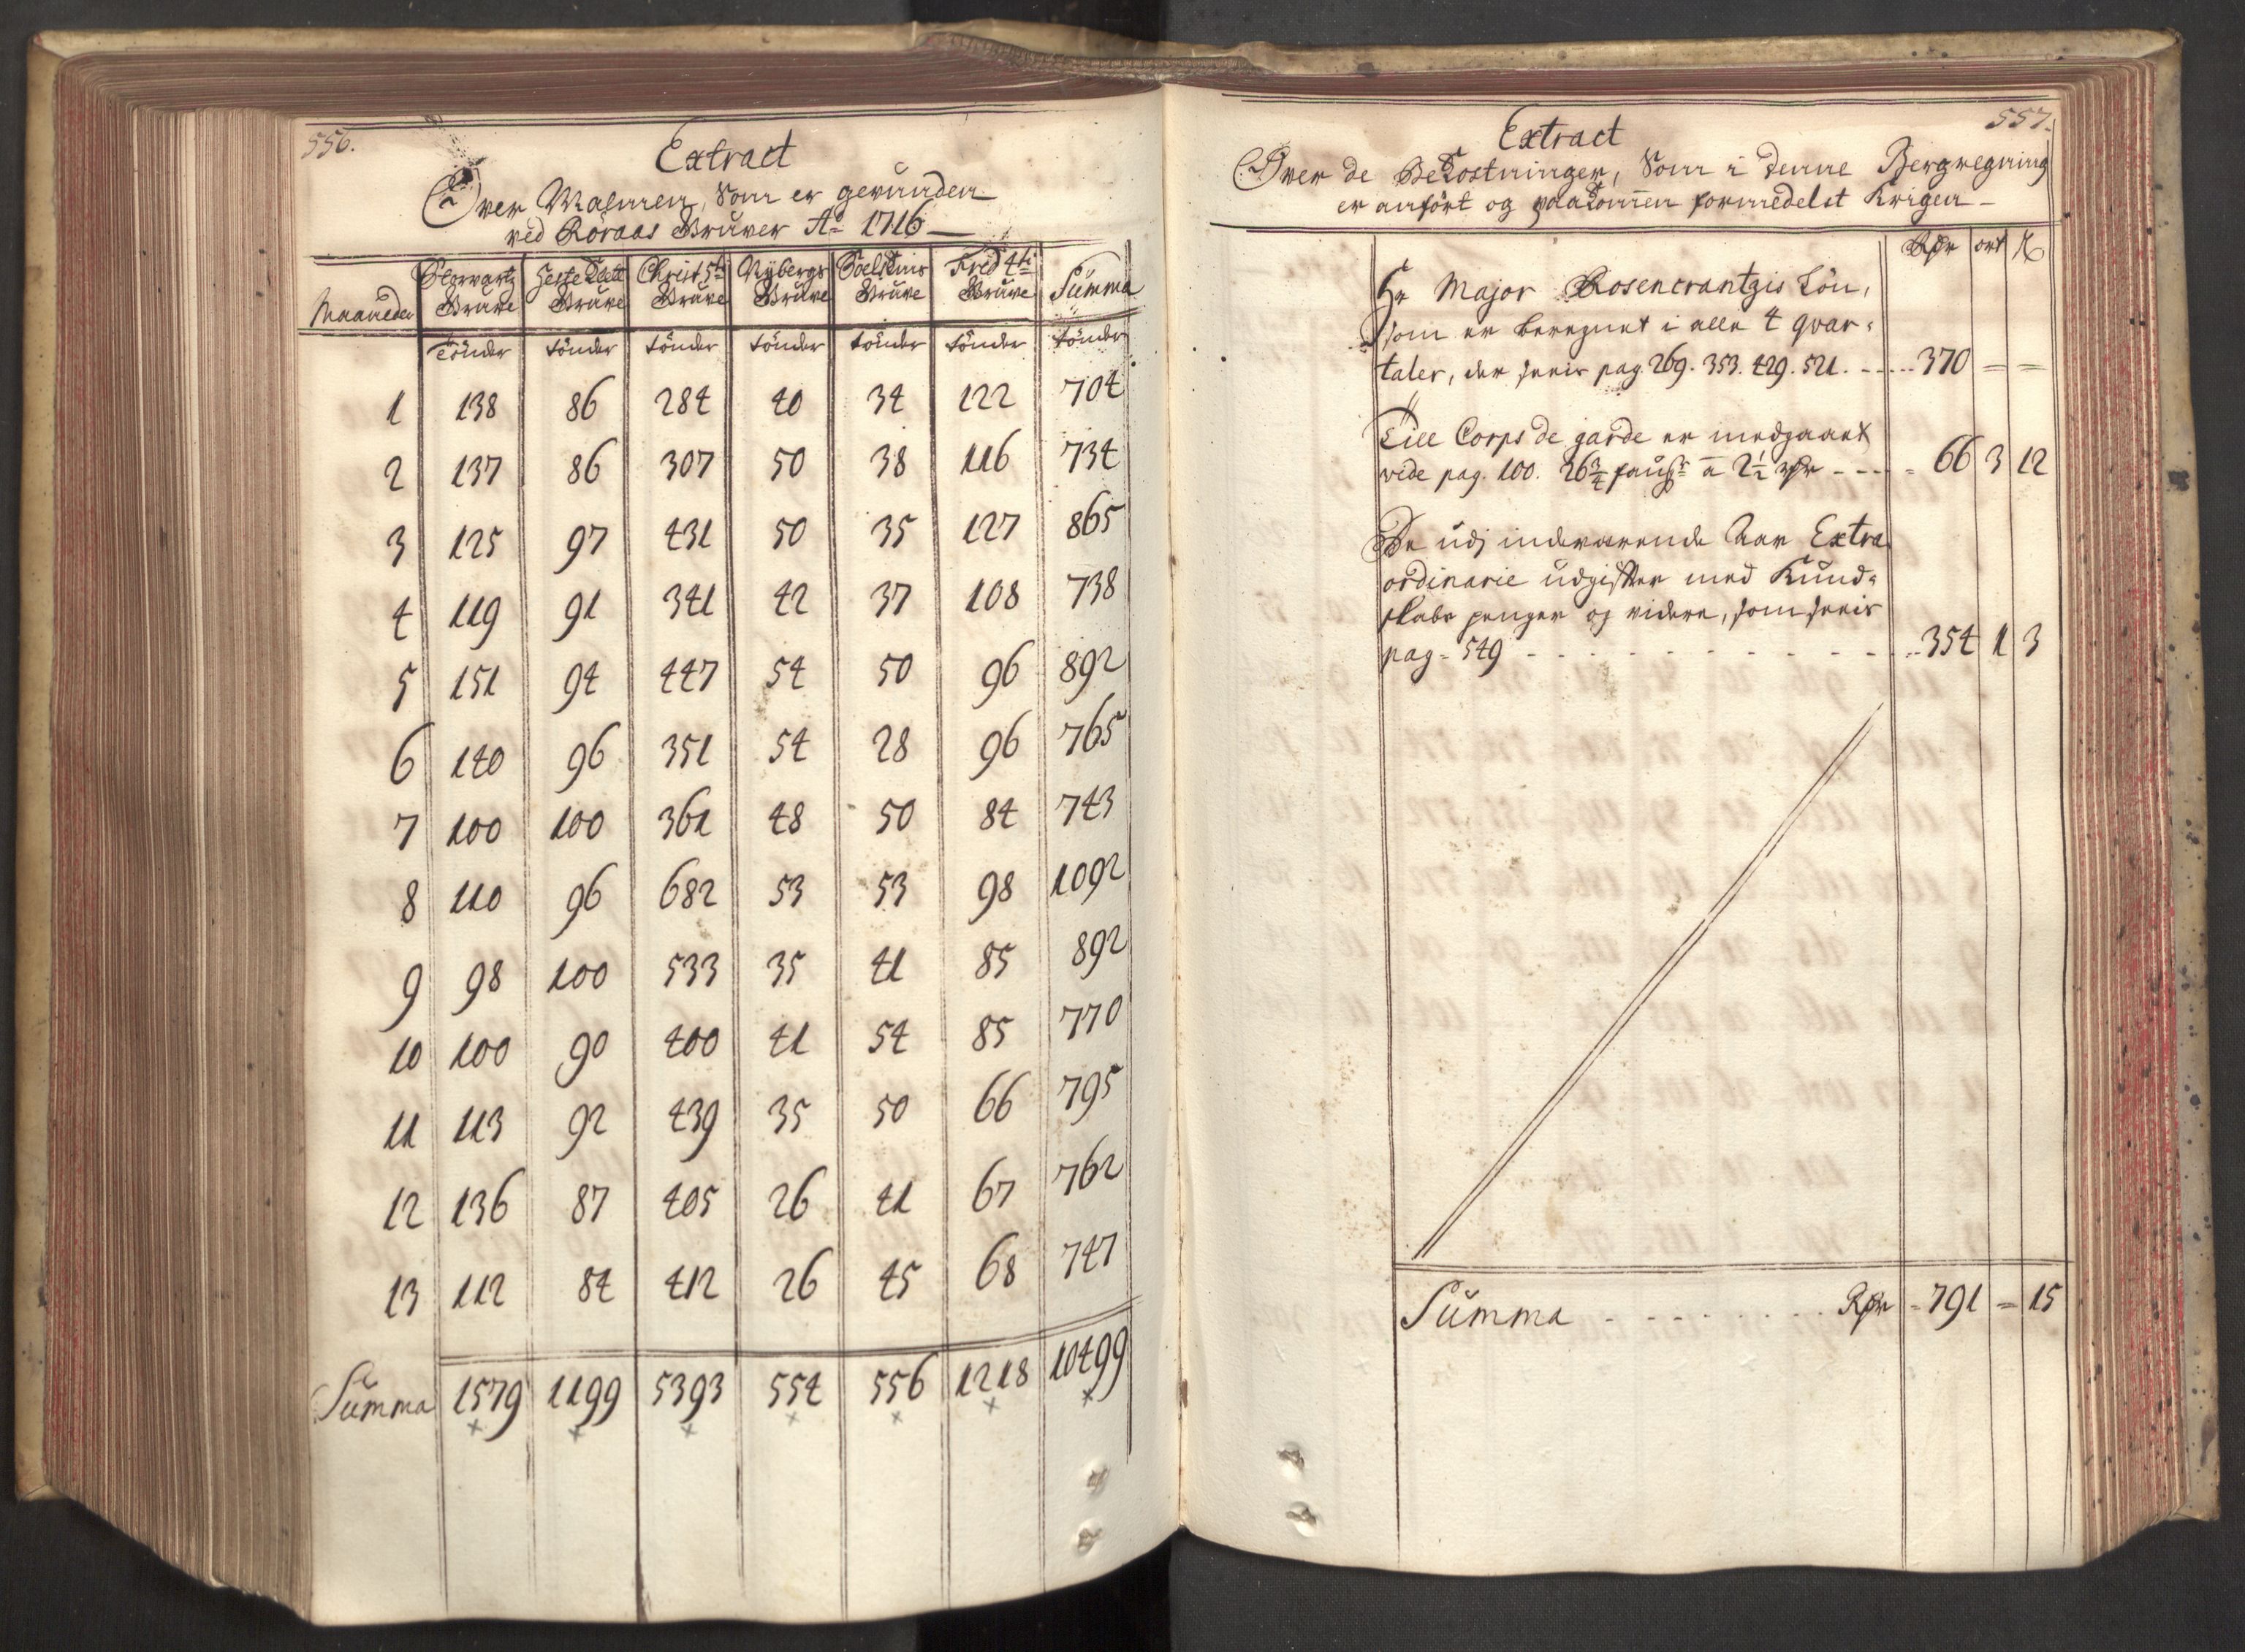 556.
Extract
Over Malmen, Som er gevunden
ved Röraas Gruver Ao 1716
Maaneder Storwartz Gruve Hesteklett Gruve Christ 5ti Gruve Nÿbergs Gruve Soelskins Gruve Frid 4ti Gruve Summa
tönder tönder tönder tönder tönder tönder tönder
1 138 86 284 40 34 122 704
2 137 86 307 50 38 116 734
3 125 97 431 50 35 127 865
4 119 91 341 42 37 108 738
5 151 94 447 54 50 96 892
6 140 96 351 54 28 96 765
7 100 100 361 48 50 84 743
8 110 96 682 53 53 98 1092
9 98 100 533 35 41 85 892
10 100 90 400 41 54 85 770
11 113 92 439 35 50 66 795
12 136 87 405 26 41 67 762
13 112 84 412 26 45 68 747
Summa 1579 1199 5393 554 556 1218 10499
557.
Extract
Over de Bekostninger, Som i denne Bergregning
er anfört og paakommen formedelst Krigen
Rdr ort
Hr Major Rosencrantzis Lön,
som er beregnet i alle 4 qvar-
taler, der sees pag. 269. 353. 429. 521. 370
Till Corps de garde er medgaaet
vide pag. 100. 26 3/4 a 2 1/2 rdr 66 3 12
De udj indeværende Aar Extra
ordinarie udgifter med Kund-
skabs penger og videre, som sees
pag. 549 354 1 3
Summa Rdr 791 = 15